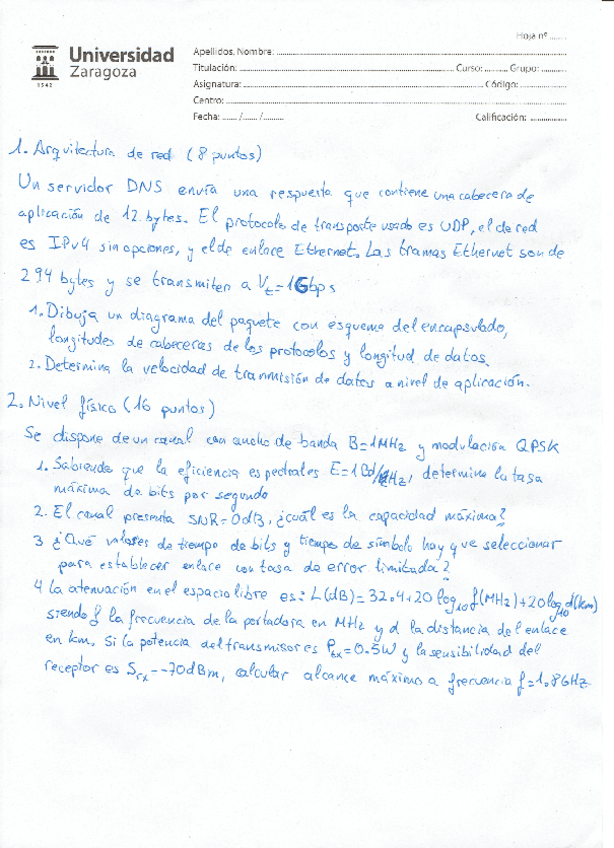 Hoja nº ........
Universidad
Zaragoza
1542
Apellidos, Nombre:
Titulación: Curso: Grupo:
Asignatura: Código:
Centro:
Fecha: ...... /...... /........ Calificación:
1. Arquitectura de red (8 puntos)
Un servidor DNS envía una respuesta que contiene una cabecera de
aplicación de 12 bytes. El protocolo de transporte usado es UDP, el de red
es IPv4 sin opciones, y el de enlace Ethernet. Las tramas Ethernet son de
294 bytes y se transmiten a Vt=1Gbps
1. Dibuja un diagrama del paquete con esquema del encapsulado,
longitudes de cabeceras de los protocolos y longitud de datos.
2. Determina la velocidad de tranmisión de datos a nivel de aplicación.
2. Nivel físico (16 puntos)
Se dispone de un canal con ancho de banda B=1MHz y modulación QPSK
1. Sabiendo que la eficiencia es pectrales E=1Bd/Hz, determine la tasa
máxima de bits por segundo
2. El canal presenta SNR=0dB, ¿cuál es la capacidad máxima?
3 ¿Qué valores de tiempo de bits y tiempo de símbolo hay que seleccionar
para establecer enlace con tasa de error limitada?
4 La atenuación en el espacio libre es: L(dB)=32.4+20log10 f(MHz)+20log10 d(km)
siendo f la frecuencia de la portadora en MHz y d la distancia del enlace
en km. Si la potencia del transmisor es Ptx=0.5W y la sensibilidad del
receptor es Srx=-70dBm, calcular alcance máximo a frecuencia f=1.8GHz